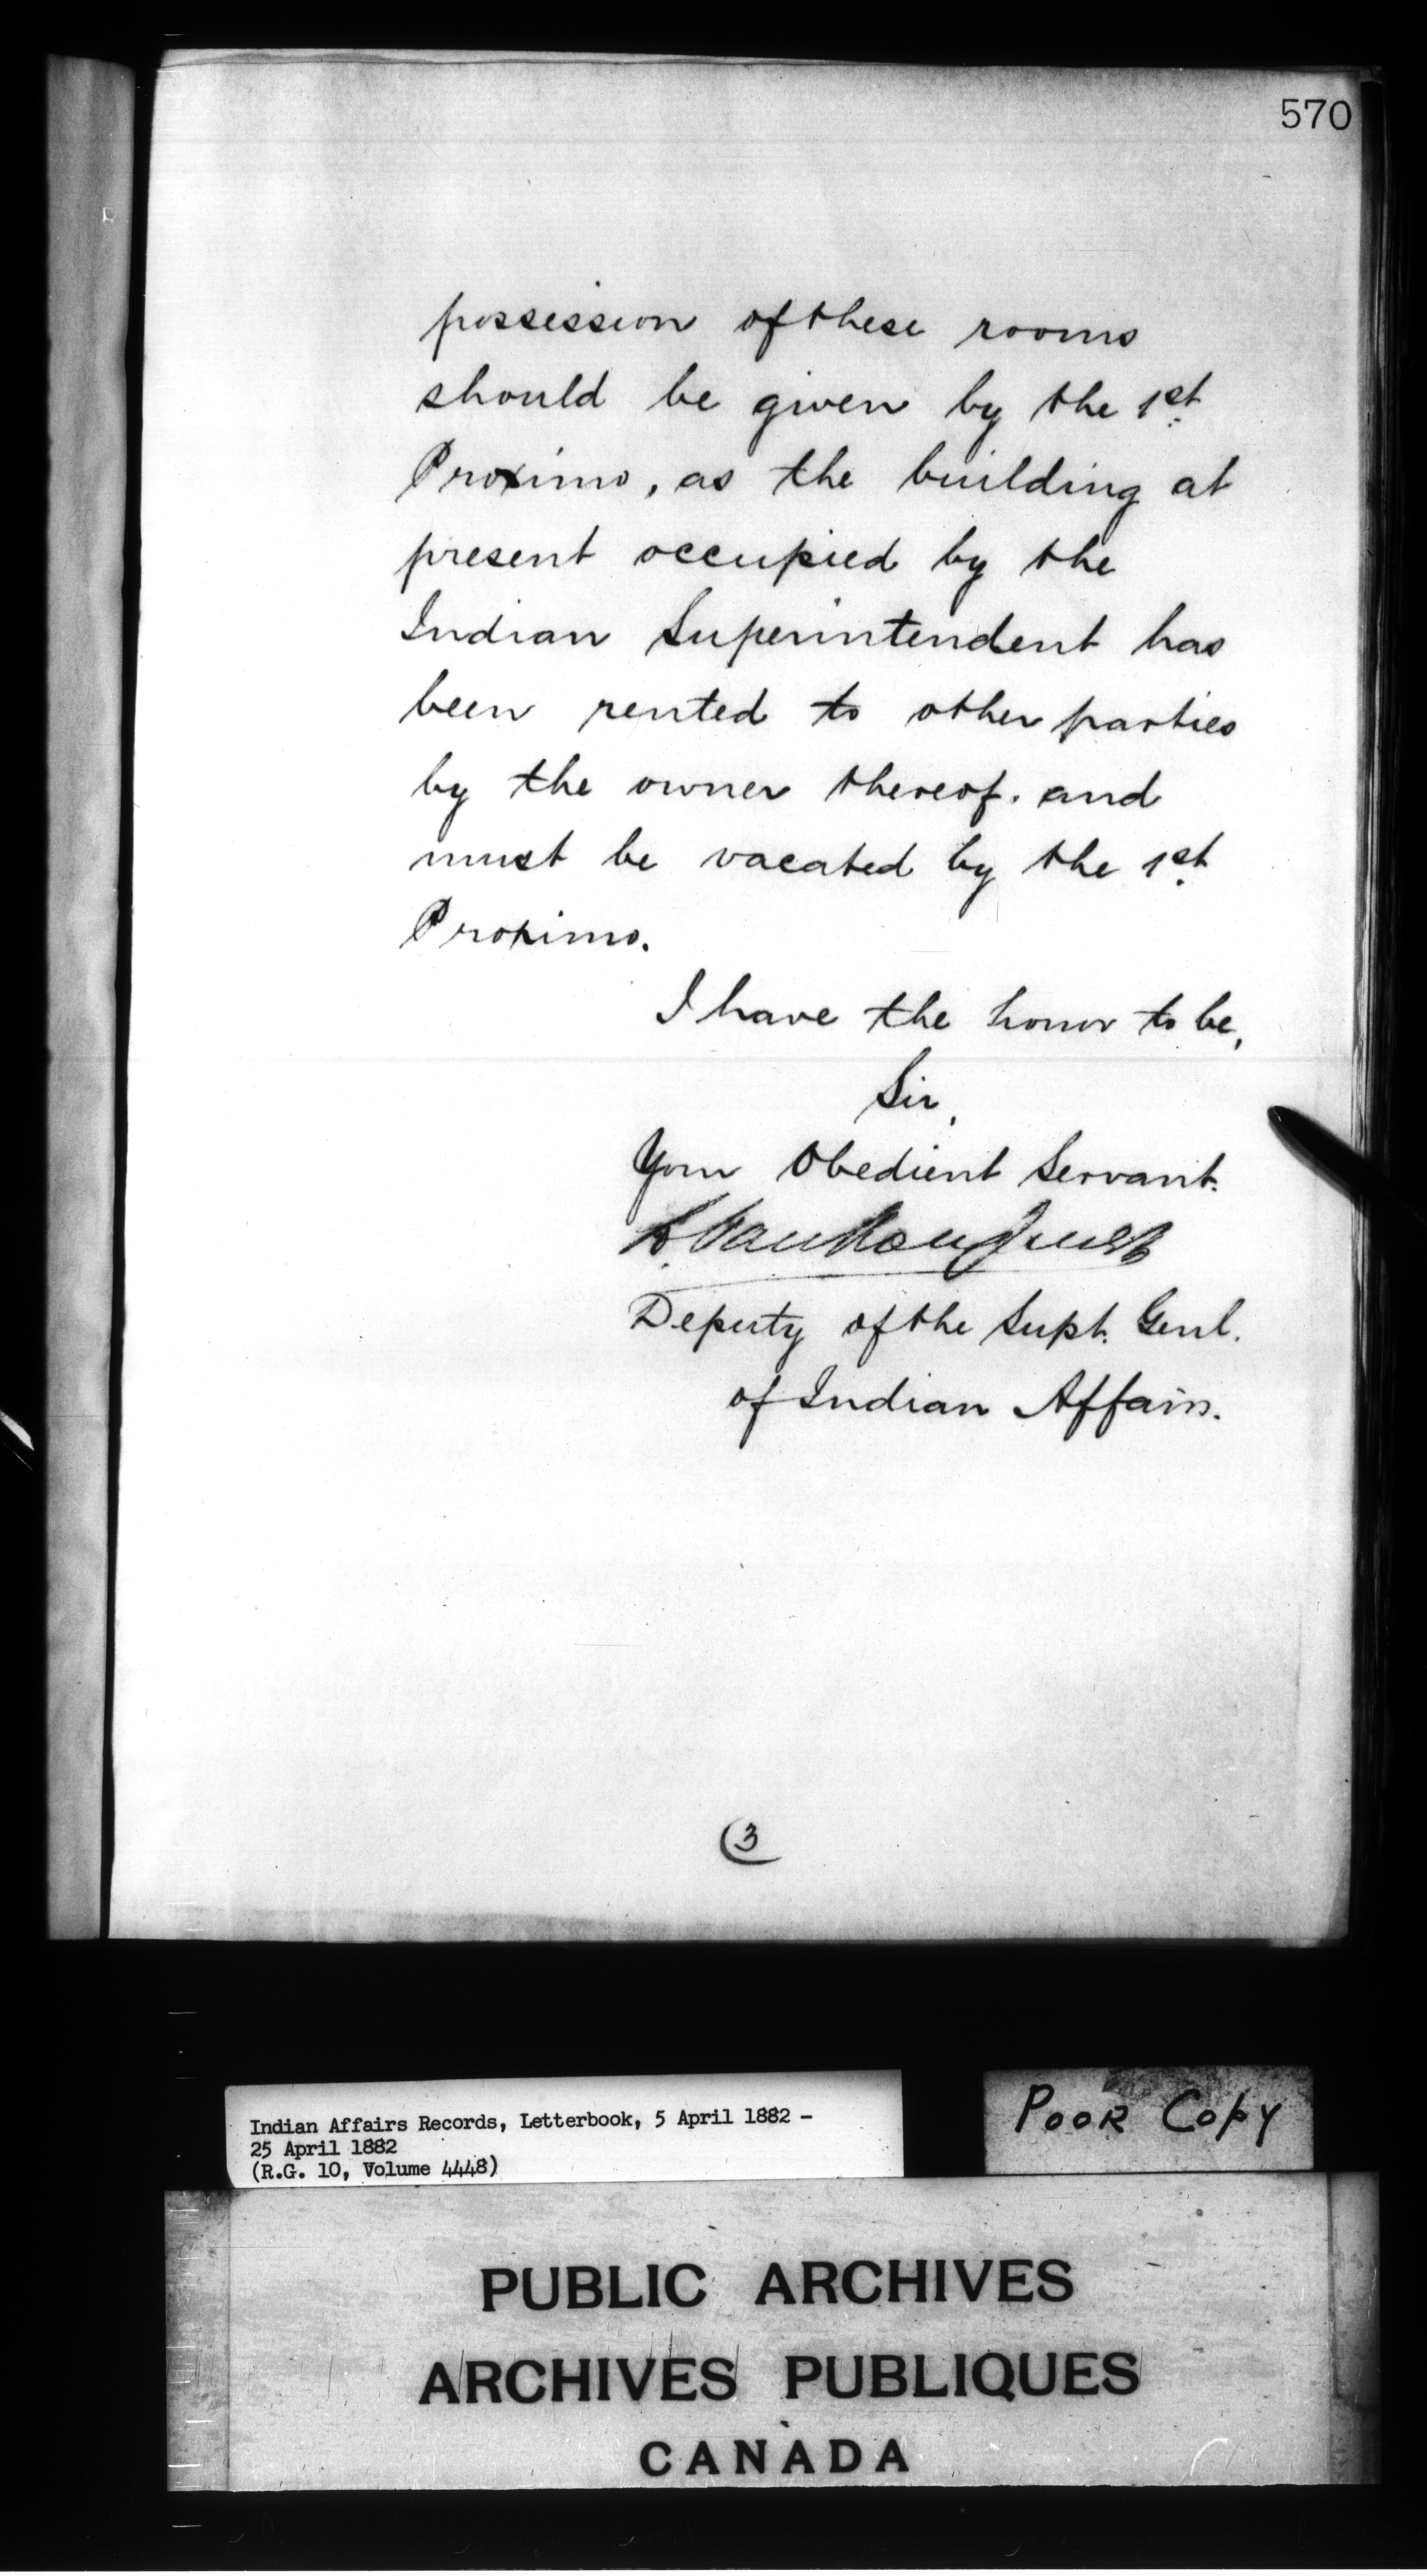 570
possession of these rooms
should be given by the 1st
Proximo, as the building at
present occupied by the
Indian Superintendent has
been rented to other parties
by the owner thereof. and
must be vacated by the 1st
Proximo.
I have the honor to be,
Sir,
Your Obedient Servant.
L. VanKoughnet
Deputy of the Supt. Genl.
of Indian Affairs.
3
Indian Affairs Records, Letterbook, 5 April 1882 –
25 April 1882
(R.G. 10, Volume 4448)
POOR COPY
PUBLIC ARCHIVES
ARCHIVES PUBLIQUES
CANADA